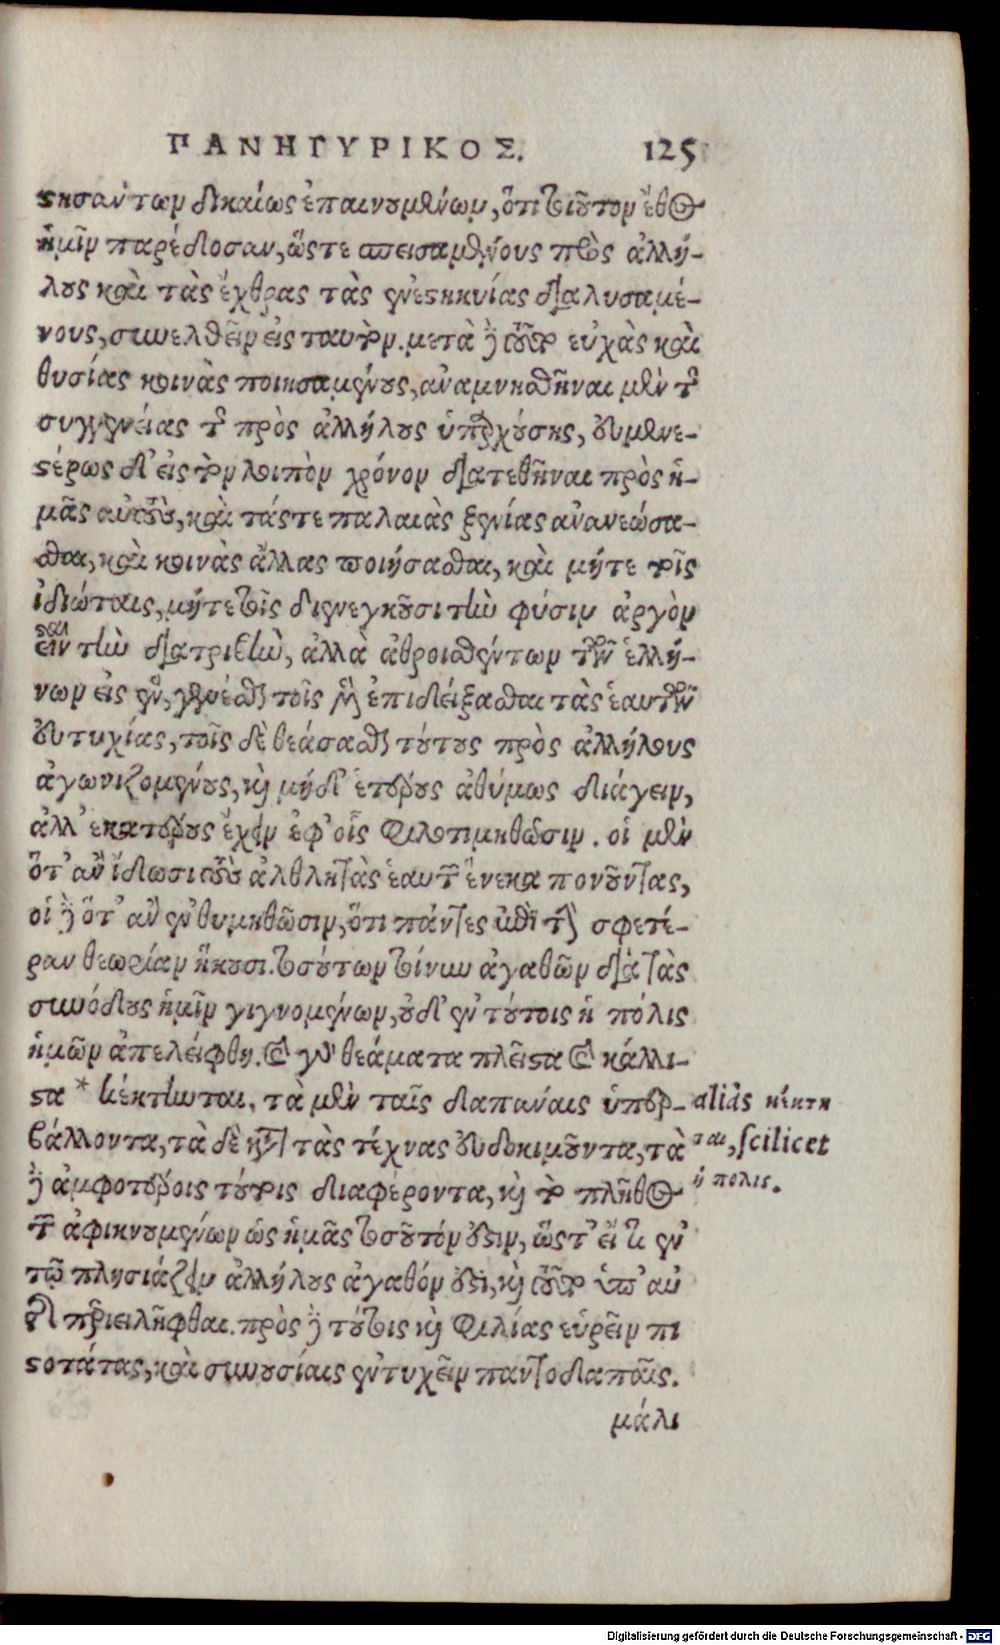 ΠΑΝΗΓΥΡΙΚΟΣ. 125
στησάντων δικαίως ἐπαινουμένων, ὅτι τοιοῦτον ἔθος
ἡμῖν παρέδοσαν, ὥστε σπεισαμένους πρὸς ἀλλή-
λους καὶ τὰς ἔχθρας τὰς ἐνεστηκυίας διαλυσαμέ-
νους, συνελθεῖν εἰς ταυτόν. μετὰ δὲ ταῦτα εὐχὰς καὶ
θυσίας κοινὰς ποιησαμένους, ἀναμνησθῆναι μὲν τῆς
συγγενείας τῆς πρὸς ἀλλήλους ὑπαρχούσης, εὐμενε-
στέρως δ' εἰς τὸν λοιπὸν χρόνον διατεθῆναι πρὸς ἡ-
μᾶς αὐτοὺς, καὶ τάς τε παλαιὰς ξενίας ἀνανεώσα-
σθαι, καὶ κοινὰς ἄλλας ποιήσασθαι, καὶ μήτε τοῖς
ἰδιώταις, μήτε τοῖς διενεγκοῦσι τὴν φύσιν ἀργὸν
εἶναι τὴν διατριβὴν, ἀλλὰ ἀθροισθέντων τῶν ἑλλή-
νων εἰς ἓν, γενέσθαι τοῖς μὲν ἐπιδείξασθαι τὰς ἑαυτῶν
εὐτυχίας, τοῖς δὲ θεάσασθαι τούτους πρὸς ἀλλήλους
ἀγωνιζομένους, καὶ μήδ' ἑτέρους ἀθύμως διάγειν,
ἀλλ' ἑκατέρους ἔχειν ἐφ' οἷς φιλοτιμηθῶσιν. οἱ μὲν
ὅτ' ἂν ἴδωσι τοὺς ἀθλητὰς ἑαυτῶν ἕνεκα πονοῦντας,
οἱ δὲ ὅτ' ἂν ἐνθυμηθῶσιν, ὅτι πάντες ἐπὶ τὴν σφετέ-
ραν θεωρίαν ἥκουσι. τοσούτων τοίνυν ἀγαθῶν διὰ τὰς
συνόδους ἡμῖν γιγνομένων, οὐδ' ἐν τούτοις ἡ πόλις
ἡμῶν ἀπελείφθη. καὶ γὰρ θεάματα πλεῖστα καὶ κάλλι-
στα * κέκτηνται, τὰ μὲν ταῖς δαπάναις ὑπερ-
βάλλοντα, τὰ δὲ κατὰ τὰς τέχνας εὐδοκιμοῦντα, τὰ
δὲ ἀμφοτέροις τούτοις διαφέροντα, καὶ τὸ πλῆθος
τῶν ἀφικνουμένων ὡς ἡμᾶς τοσοῦτόν ἐστιν, ὥστ' εἴ τι ἐν
τῷ πλησιάζειν ἀλλήλους ἀγαθόν ἐστι, καὶ τοῦτο ὑπ' αὐ
τῆς περιειλῆφθαι. πρὸς δὲ τούτοις καὶ φιλίας εὑρεῖν πι
στοτάτας, καὶ συνουσίαις ἐντυχεῖν παντοδαπαῖς.
μάλι
alias κέκτη
ται, scilicet
ἡ πόλις.
Digitalisierung gefördert durch die Deutsche Forschungsgemeinschaft - DFG